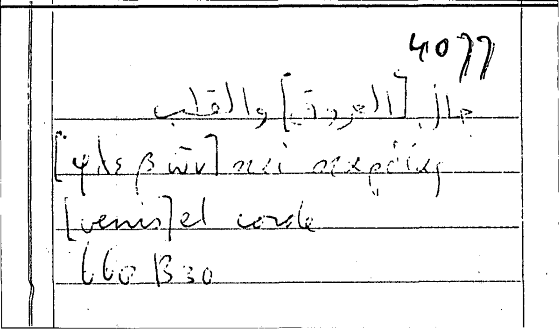 4077
حال [العروق] والقلب
[φλεβῶν] καὶ καρδίας
[venis] et corde
660 B 30